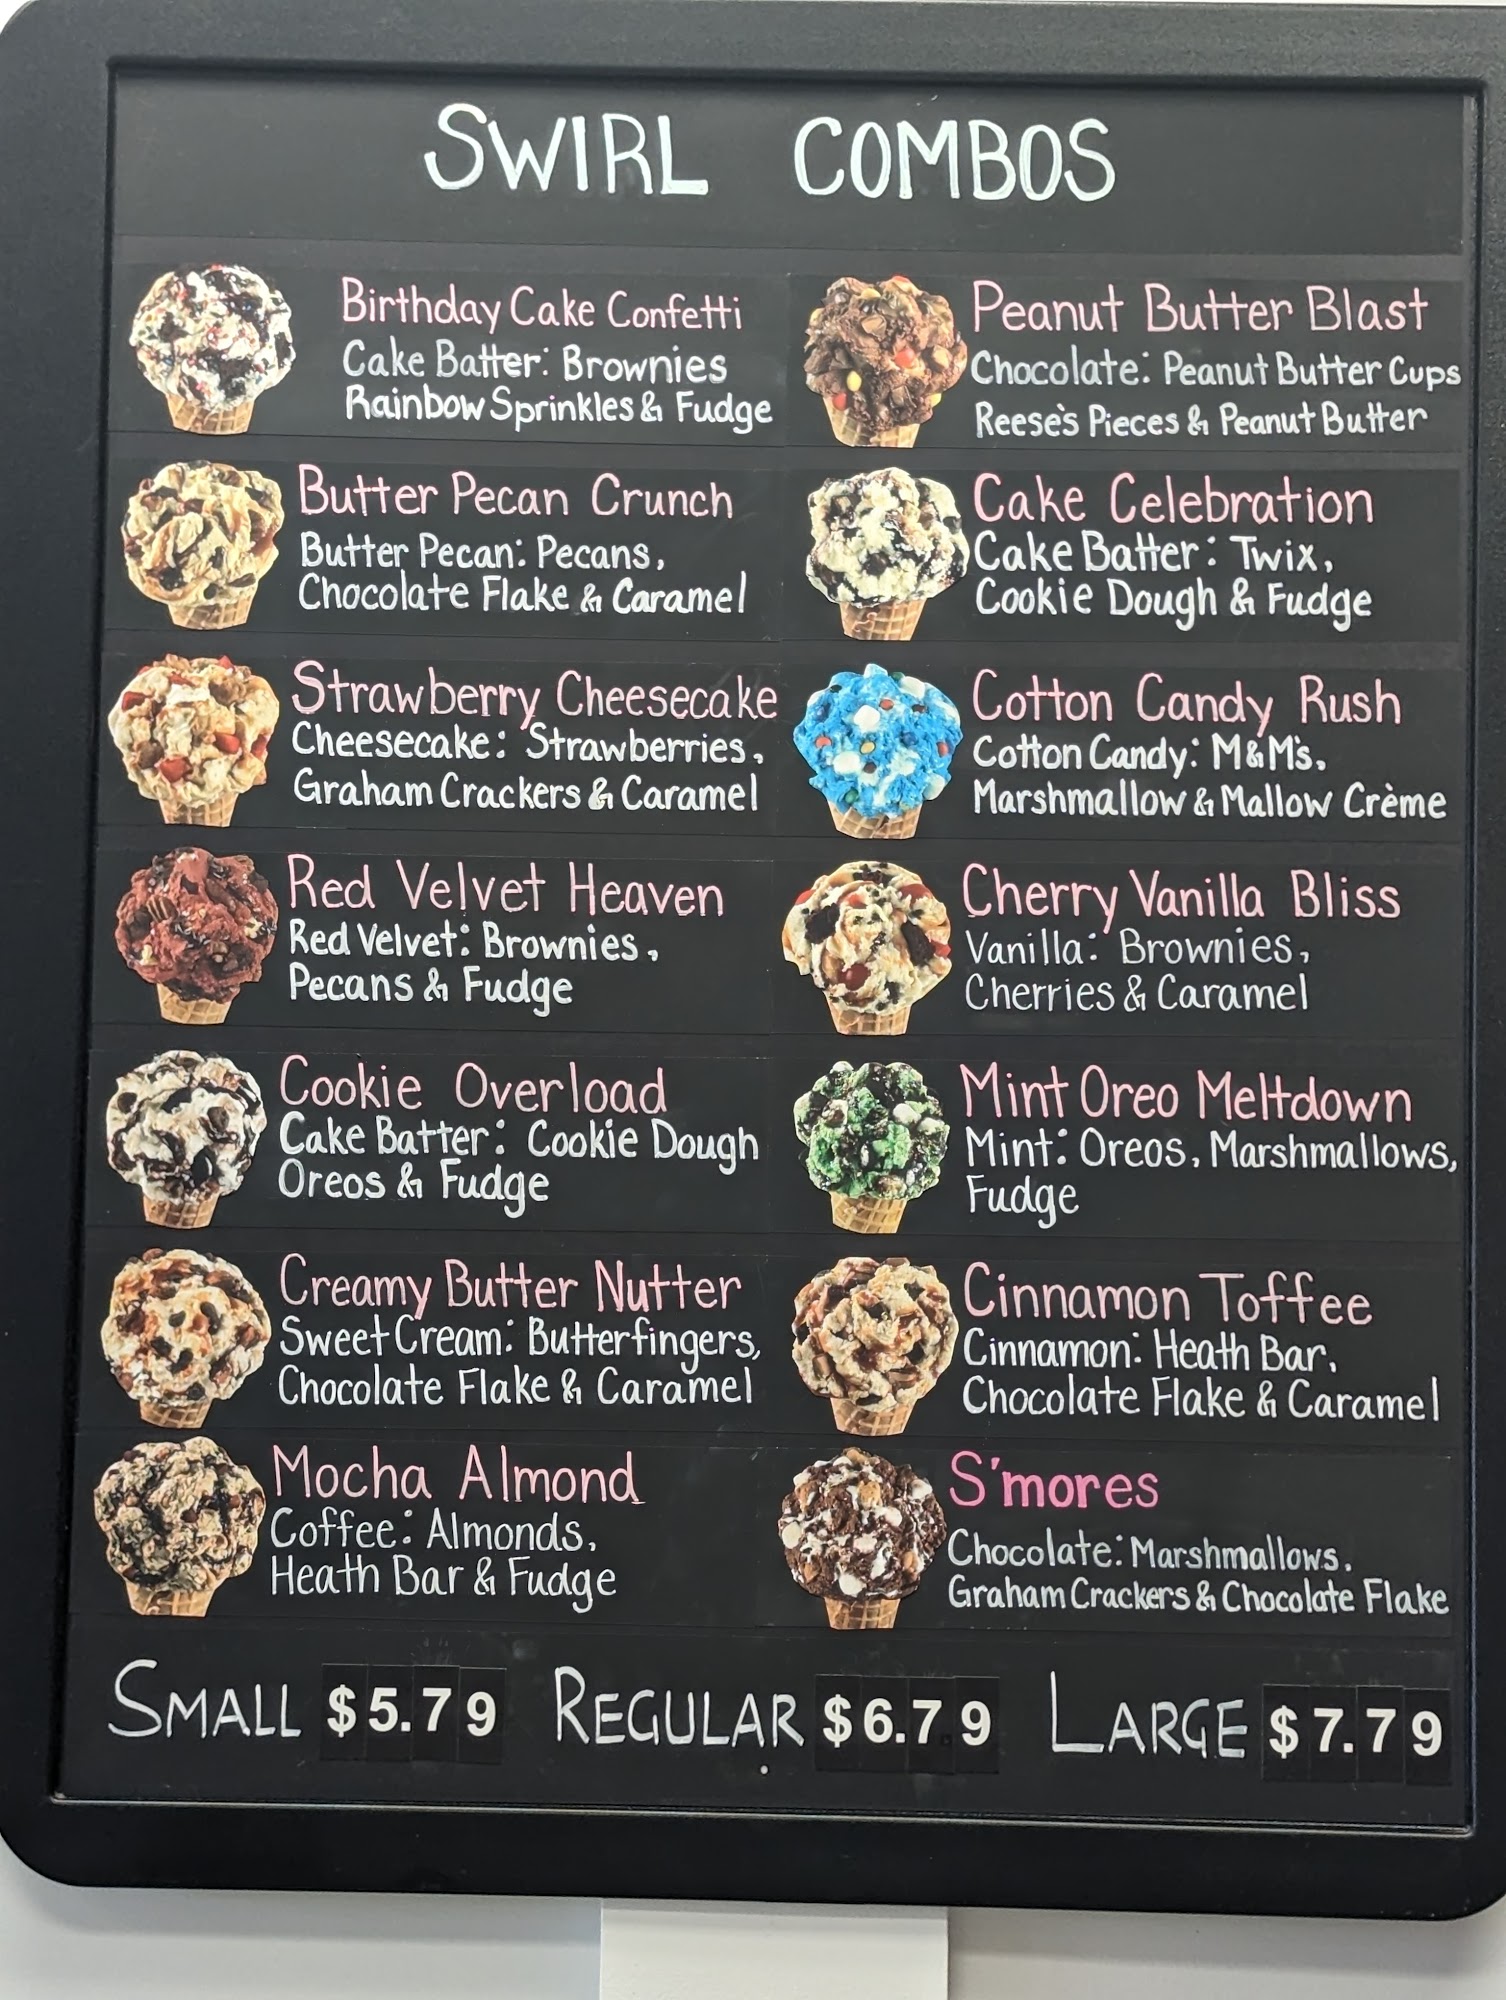 SWIRL COMBOS
Birthday Cake Confetti
Cake Batter: Brownies
Rainbow Sprinkles & Fudge
Peanut Butter Blast
Chocolate: Peanut Butter Cups
Reese's Pieces & Peanut Butter
Butter Pecan Crunch
Butter Pecan: Pecans,
Chocolate Flake & Caramel
Cake Celebration
Cake Batter: Twix,
Cookie Dough & Fudge
Strawberry Cheesecake
Cheesecake: Strawberries,
Graham Crackers & Caramel
Cotton Candy Rush
Cotton Candy: M&M's,
Marshmallow & Mallow Crème
Red Velvet Heaven
Red Velvet: Brownies,
Pecans & Fudge
Cherry Vanilla Bliss
Vanilla: Brownies,
Cherries & Caramel
Cookie Overload
Cake Batter: Cookie Dough
Oreos & Fudge
Mint Oreo Meltdown
Mint: Oreos, Marshmallows,
Fudge
Creamy Butter Nutter
Sweet Cream: Butterfingers,
Chocolate Flake & Caramel
Cinnamon Toffee
Cinnamon: Heath Bar,
Chocolate Flake & Caramel
Mocha Almond
Coffee: Almonds,
Heath Bar & Fudge
S'mores
Chocolate: Marshmallows,
Graham Crackers & Chocolate Flake
SMALL $5.79 REGULAR $6.79 LARGE $7.79